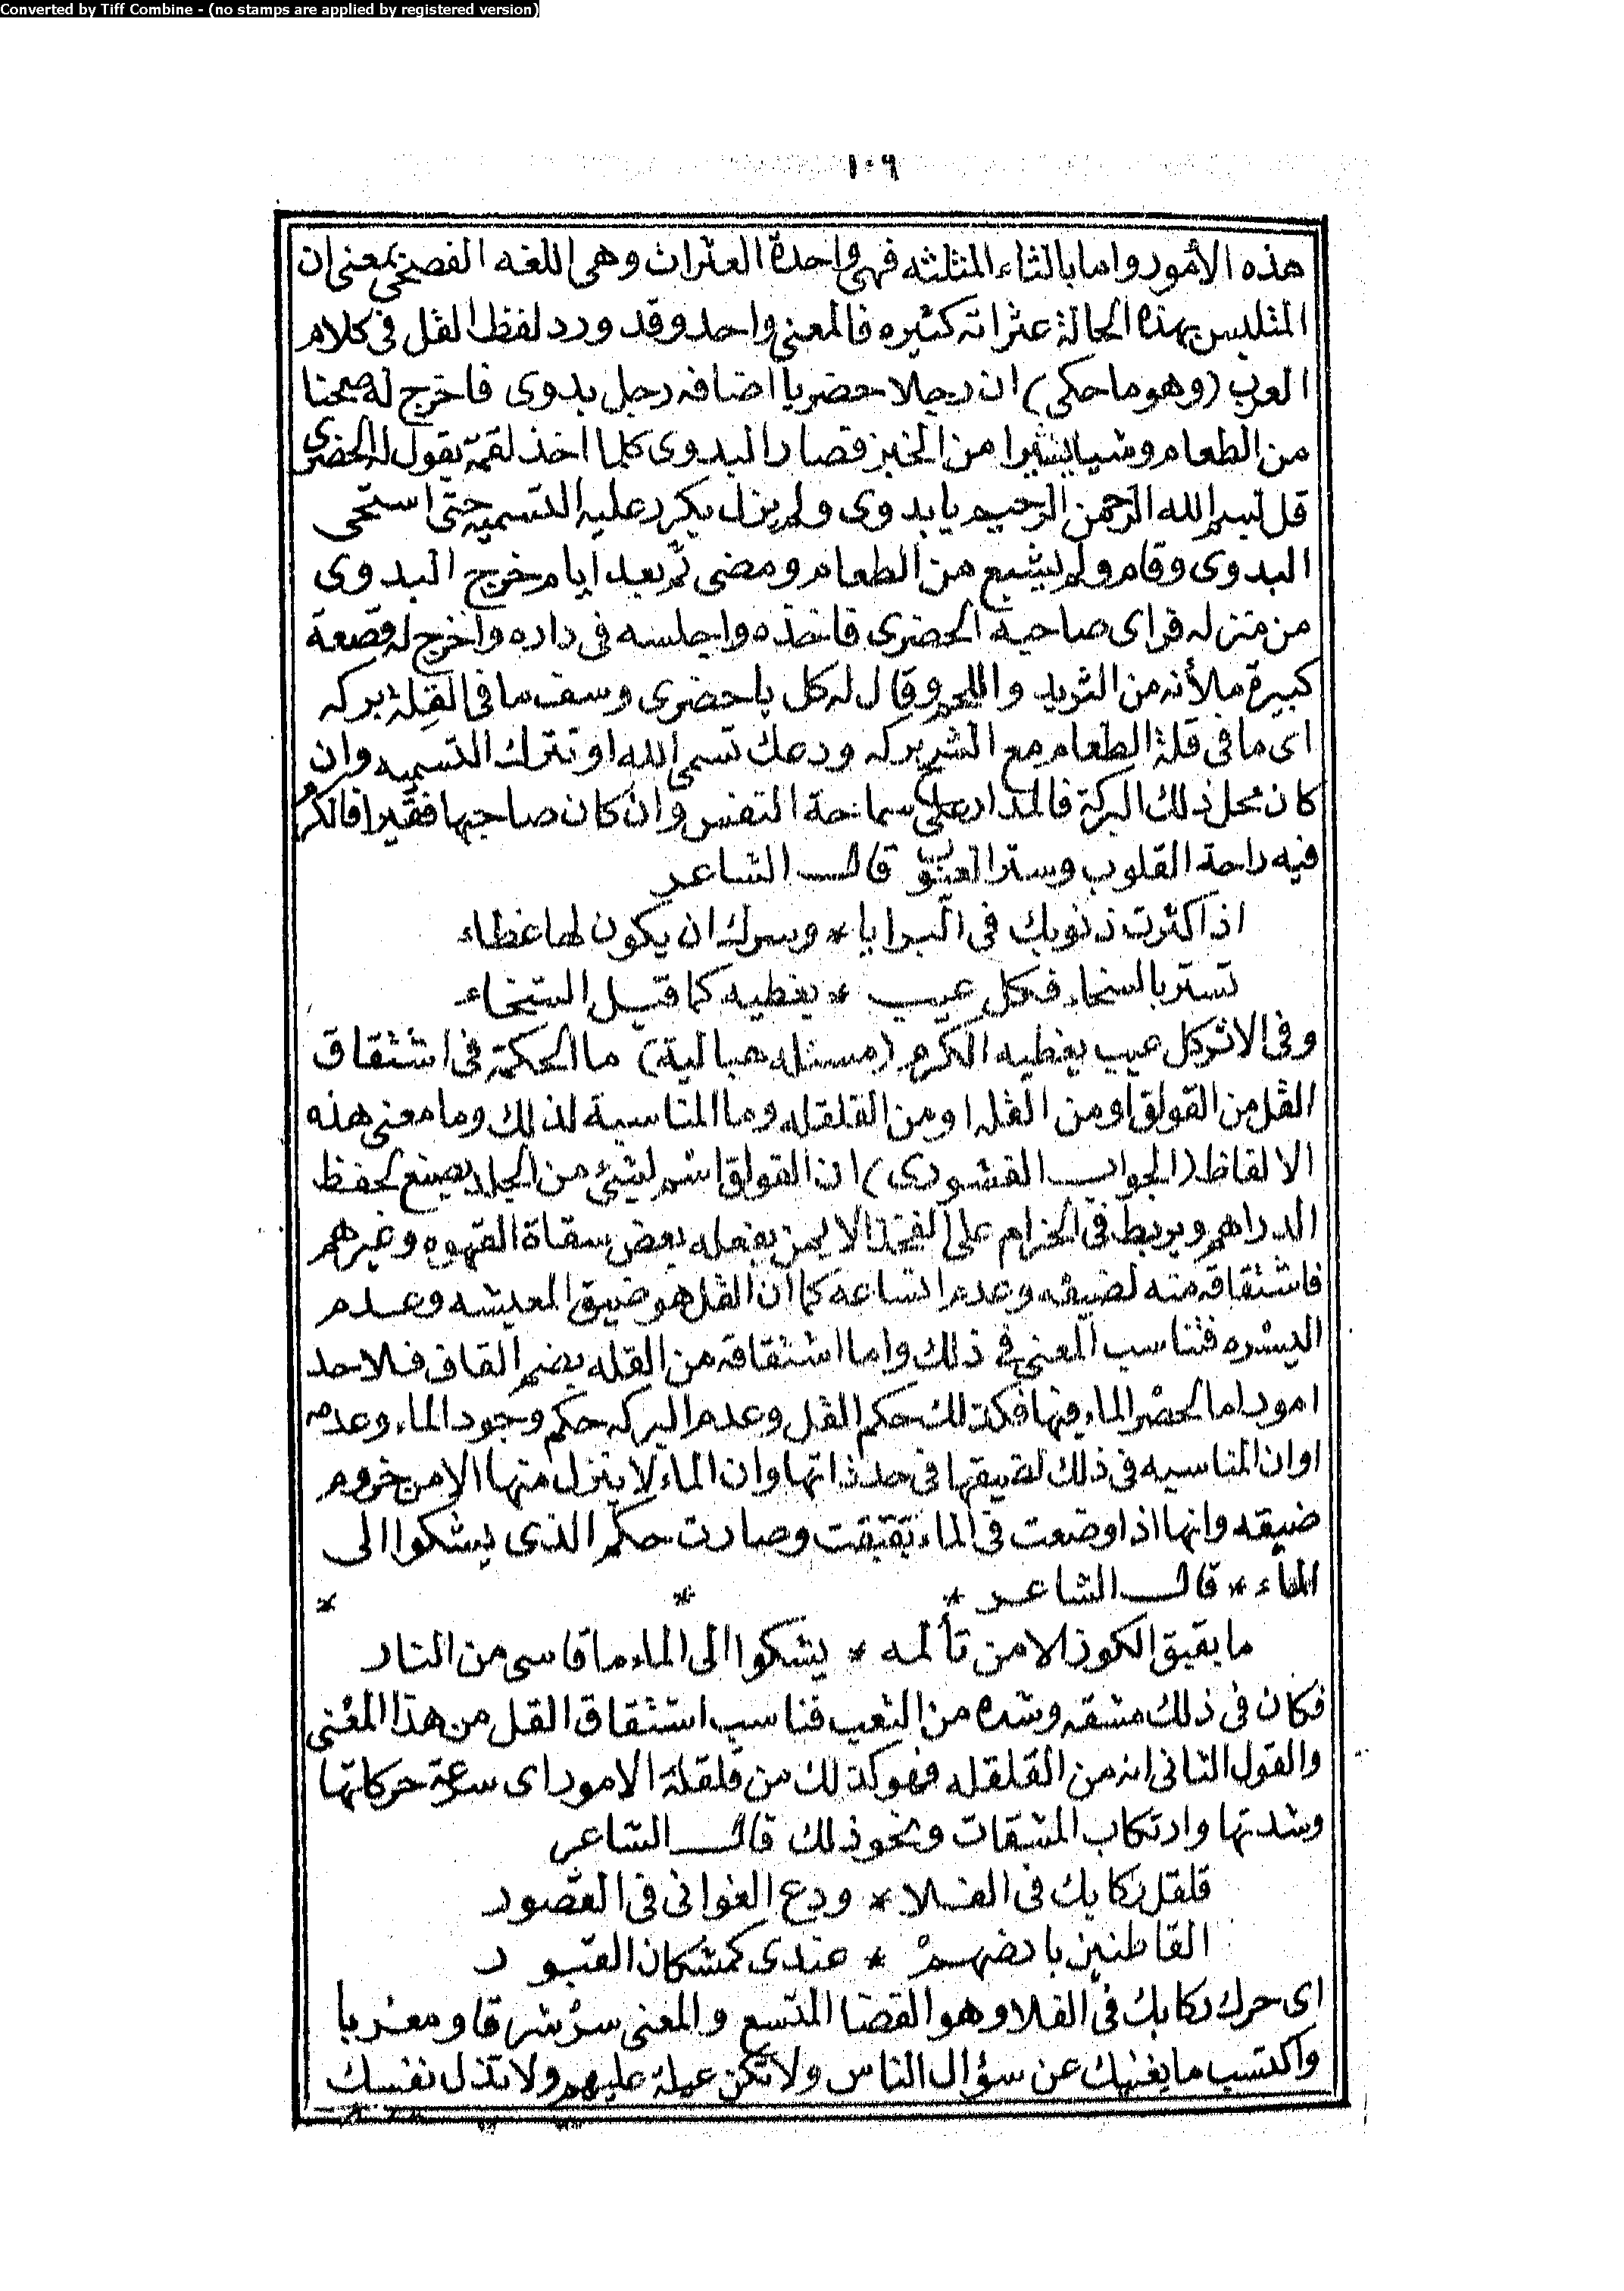 Converted by Tiff Combine - (no stamps are applied by registered version)
١٠٩
هذه الأمور واما بالثاء المثلثه فهى واحدة العثرات وهى اللغه الفصحى بمعنى ان
المتلبس بهذه الحالة عثراته كثيره فالمعنى واحد وقد ورد لفظ القل فى كلام
العرب (وهو ما حكى) ان رجلا حضريا اضافه رجل بدوى فاخرج له صحنا
من الطعام وشيا يسيرا من الخبز فصار البدوى كلما اخذ لقمة يقول له الحضرى
قل بسم الله الرحمن الرحيم يا بدوى ولم يزل يكرر عليه التسميه حتى استحى
البدوى وقام ولم يشبع من الطعام ومضى ثم بعد ايام خرج البدوى
من منزله فراى صاحبه الحضرى فاخذه واجلسه فى داره واخرج له قصعة
كبيرة ملأنه من الثريد واللحم وقال له كل يا حضرى وسف ما فى القلة بركه
اى ما فى قلة الطعام مع الشح بركه ودعك تسمى الله او تترك التسميه وان
كان محل ذلك البركة فالمدار على سماحة النفس وان كان صاحبها فقيرا فالكرم
فيه راحة القلوب وستر العيوب قال الشاعر
اذا كثرت ذنوبك فى البرايا * وسرك ان يكون لها غطاء
تستر بالسخاء فكل عيب * يغطيه كما قيل السخاء
وفى الاثر كل عيب يغطيه الكرم (مسئله هبالية) ما الحكمة فى اشتقاق
القل من القولق او من القله او من القلقله وما المناسبة لذلك وما معنى هذه
الالفاظ (الجواب الفشودى) ان القولق اسم لشئ من الجلد يصنع لحفظ
الدراهم ويربط فى الحزام على الفخذ الايمن يفعله بعض سقاة القهوه وغيرهم
فاشتقاقه منه لضيقه وعدم اتساعه كما ان القل هو ضيق المعيشه وعدم
اليسره فتناسب المعنى فى ذلك واما اشتقاقه من القله بضم القاف فلاحد
امور اما لحصر الماء فيها فكذلك حكم القل وعدم البركه حكم وجود الماء وعدمه
او ان المناسبه فى ذلك لضيقها فى حد ذاتها وان الماء لا ينزل منها الا من خروم
ضيقه وانها اذا وضعت فى الماء تقيقت وصارت حكم الذى يشكوا الى
الماء * قال الشاعر * * *
ما يقيق الكوز الا من تألمه * يشكوا الى الماء ما قاسى من النار
فكان فى ذلك مشقه وشده من التعب فناسب اشتقاق القل من هذا المعنى
والقول الثانى انه من القلقله فهو كذلك من قلقلة الامور اى سرعة حركاتها
وشدتها وارتكاب المشقات ونحو ذلك قال الشاعر
قلقل ركابك فى الفلا * ودع الغوانى فى القصور
القاطنين بارضهم * عندى كمسكان القبور
اى حرك ركابك فى الفلا وهو الفضا المتسع والمعنى سر شرقا ومغربا
واكتسب ما يغنيك عن سؤال الناس ولا تكن عيلة عليهم ولا تذل نفسك